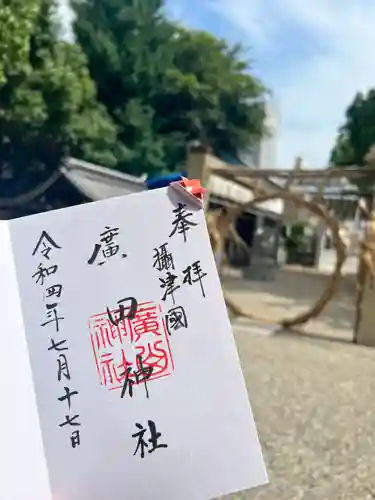 奉拝
攝津國
廣田神社
廣田神社
令和四年七月十七日